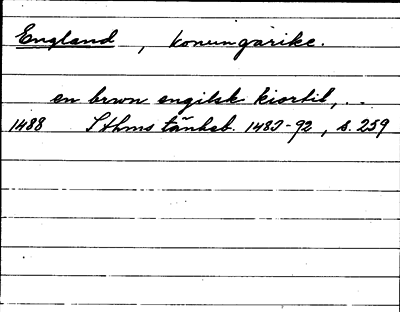 England, konungarike.
en brwn engilsk kiortil, . .
1488 Sthms tänkeb. 1483-92, s. 259